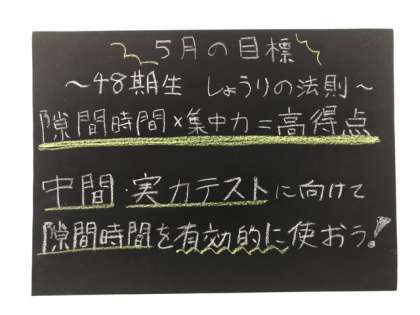 5月の目標
～48期生 しょうりの法則～
隙間時間×集中力=高得点
中間・実力テストに向けて
隙間時間を有効的に使おう!